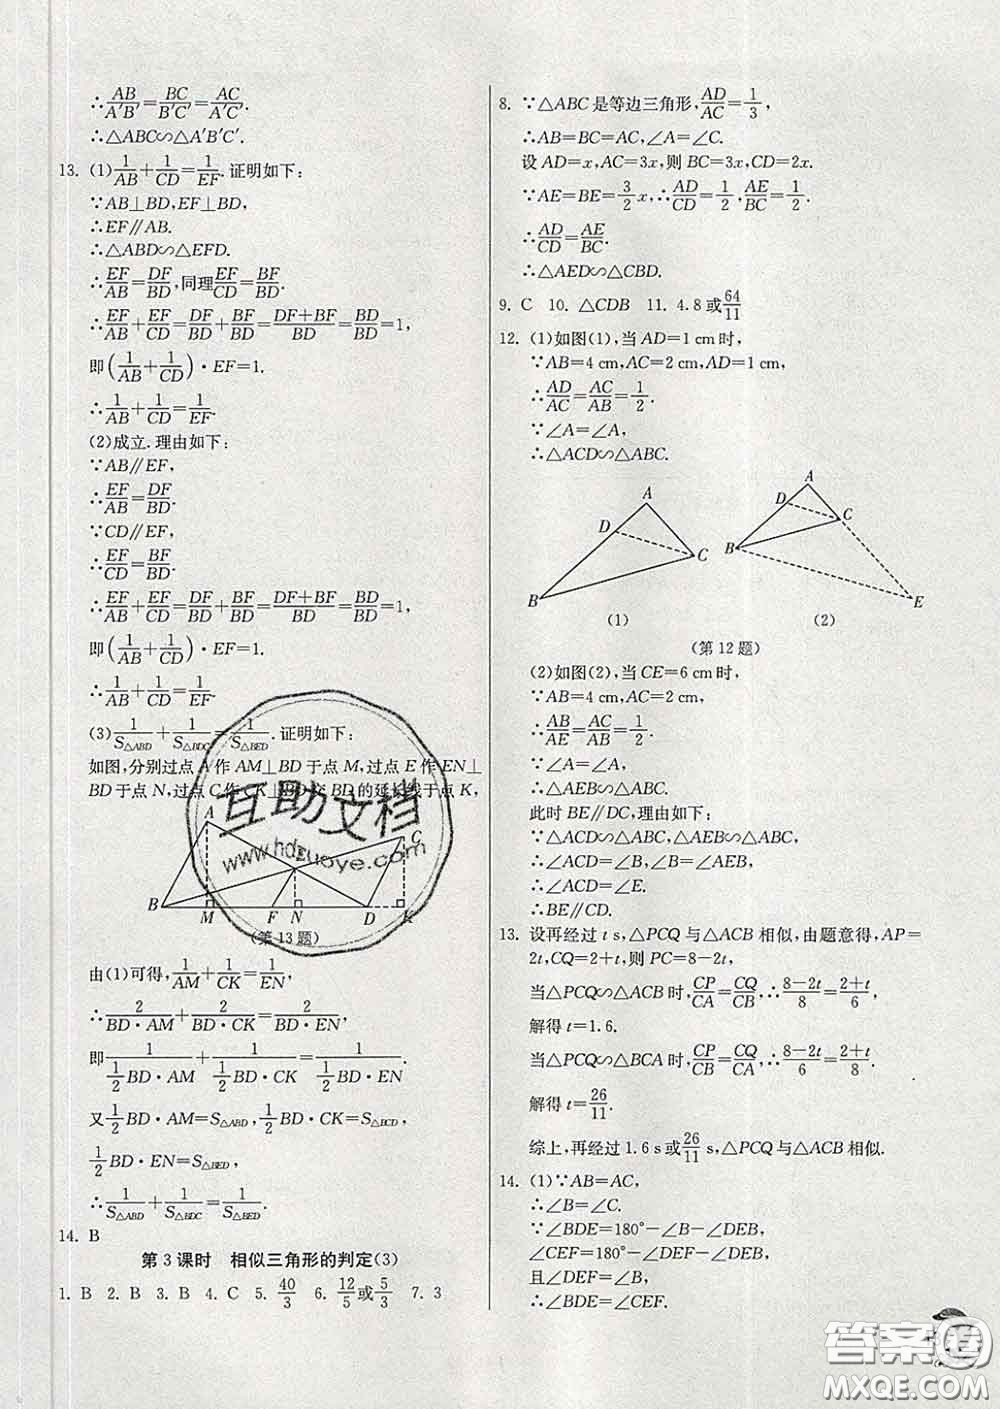 ∴AB/A′B′=BC/B′C′=AC/A′C′.
∴△ABC∽△A′B′C′.
13. (1)1/AB+1/CD=1/EF.证明如下:
∵AB⊥BD,EF⊥BD,
∴EF∥AB.
∴△ABD∽△EFD.
∴EF/AB=DF/BD,同理EF/CD=BF/BD.
∴EF/AB+EF/CD=DF/BD+BF/BD=DF+BF/BD=BD/BD=1,
即(1/AB+1/CD)·EF=1.
∴1/AB+1/CD=1/EF.
(2)成立.理由如下:
∵AB∥EF,
∴EF/AB=DF/BD.
∵CD∥EF,
∴EF/CD=BF/BD.
∴EF/AB+EF/CD=DF/BD+BF/BD=DF+BF/BD=BD/BD=1,
即(1/AB+1/CD)·EF=1.
∴1/AB+1/CD=1/EF.
(3)1/S△ABD+1/S△BDC=1/S△BED.证明如下:
如图,分别过点A作AM⊥BD于点M,过点E作EN⊥
BD于点N,过点C作CK⊥BD交BD的延长线于点K,
互助文档
www.hdzuoye.com
A
C
E
B M F N D K
(第13题)
由(1)可得,1/AM+1/CK=1/EN,
∴2/BD·AM+2/BD·CK=2/BD·EN,
即1/(1/2 BD·AM)+1/(1/2 BD·CK)=1/(1/2 BD·EN).
又1/2 BD·AM=S△ABD,1/2 BD·CK=S△BCD,
1/2 BD·EN=S△BED,
∴1/S△ABD+1/S△BDC=1/S△BED.
14. B
第3课时 相似三角形的判定(3)
1. B 2. B 3. B 4. C 5. 40/3 6. 12/5或5/3 7. 3
8. ∵△ABC是等边三角形,AD/AC=1/3,
∴AB=BC=AC,∠A=∠C.
设AD=x,AC=3x,则BC=3x,CD=2x.
∵AE=BE=3/2 x,∴AD/CD=1/2,AE/BC=1/2.
∴AD/CD=AE/BC.
∴△AED∽△CBD.
9. C 10. △CDB 11. 4.8或64/11
12. (1)如图(1),当AD=1 cm时,
∵AB=4 cm,AC=2 cm,AD=1 cm,
∴AD/AC=AC/AB=1/2.
∵∠A=∠A,
∴△ACD∽△ABC.
A
D
C
B
(1)
A
D
C
B
E
(2)
(第12题)
(2)如图(2),当CE=6 cm时,
∵AB=4 cm,AC=2 cm,
∴AB/AE=AC/AB=1/2.
∵∠A=∠A,
∴△AEB∽△ABC.
此时BE∥DC,理由如下:
∵△ACD∽△ABC,△AEB∽△ABC,
∴∠ACD=∠B,∠B=∠AEB,
∴∠ACD=∠E.
∴BE∥CD.
13. 设再经过t s,△PCQ与△ACB相似,由题意得,AP=
2t,CQ=2+t,则PC=8-2t,
当△PCQ∽△ACB时,CP/CA=CQ/CB,∴8-2t/8=2+t/6,
解得t=1.6.
当△PCQ∽△BCA时,CP/CB=CQ/CA,∴8-2t/6=2+t/8.
解得t=26/11.
综上,再经过1.6 s或26/11 s,△PCQ与△ACB相似.
14. (1)∵AB=AC,
∴∠B=∠C.
∵∠BDE=180°-∠B-∠DEB,
∠CEF=180°-∠DEF-∠DEB,
且∠DEF=∠B,
∴∠BDE=∠CEF.
答案圈
MXQE.COM